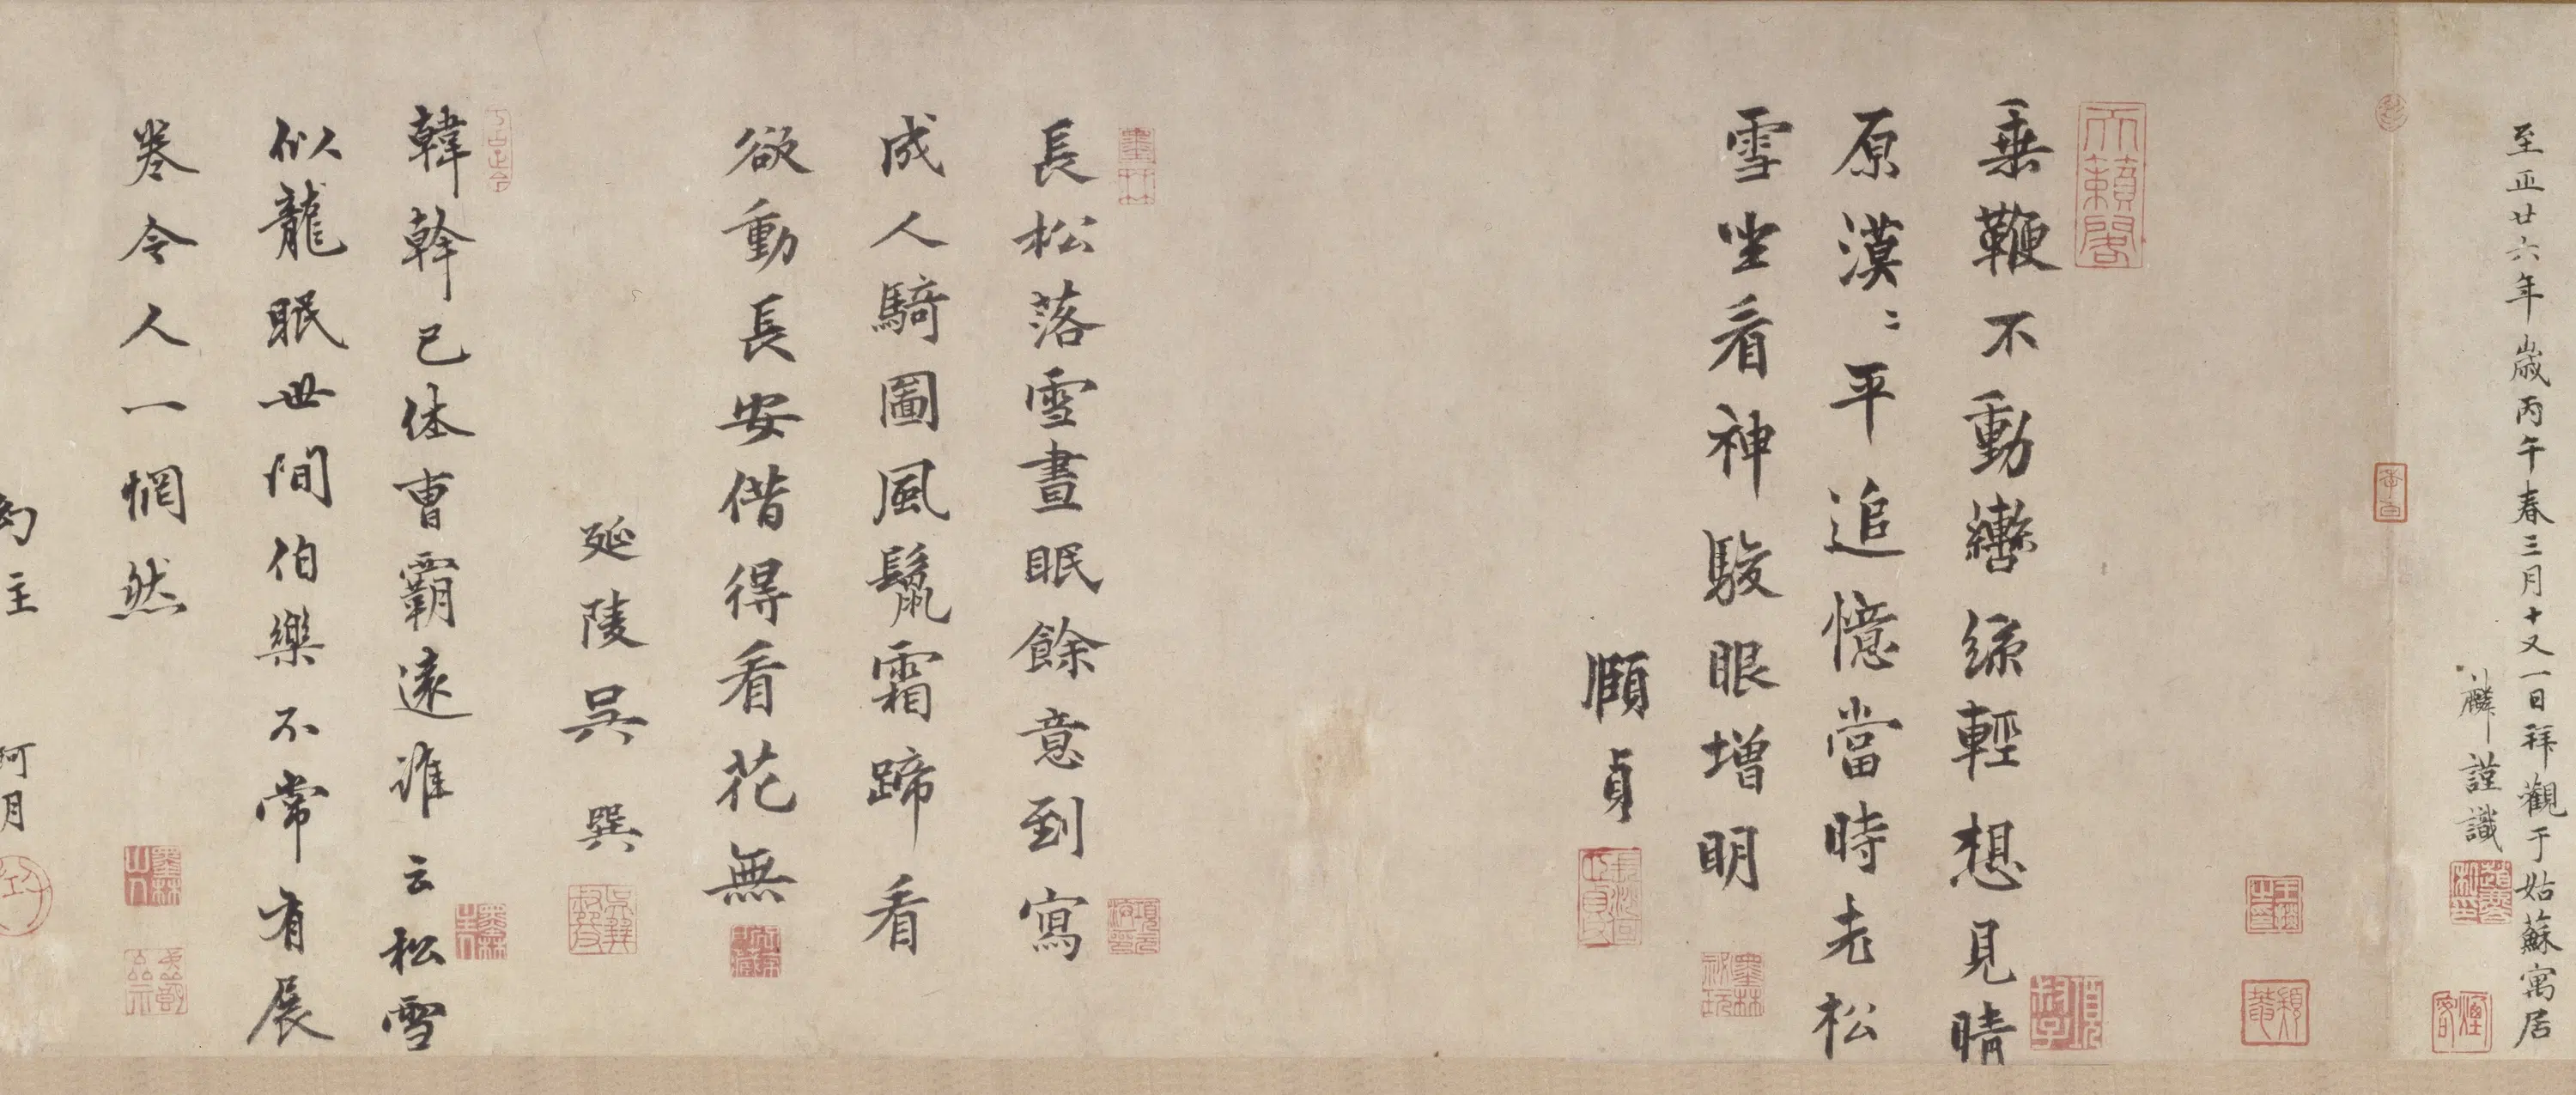 至正廿六年歲丙午春三月十又一日拜觀于姑蘇寓居
麟謹識
垂鞭不動轡絲輕想見晴
原漠〻平追憶當時老松
雪坐看神駿眼增明
顧貞
長松落雪晝眠餘意到寫
成人騎圖風鬣霜蹄看
欲動長安借得看花無
延陵吳巽
韓幹已往曹霸遠誰云松雪
似龍眠世間伯樂不常有展
卷令人一惘然
主
阿月
天籟閣
墨林